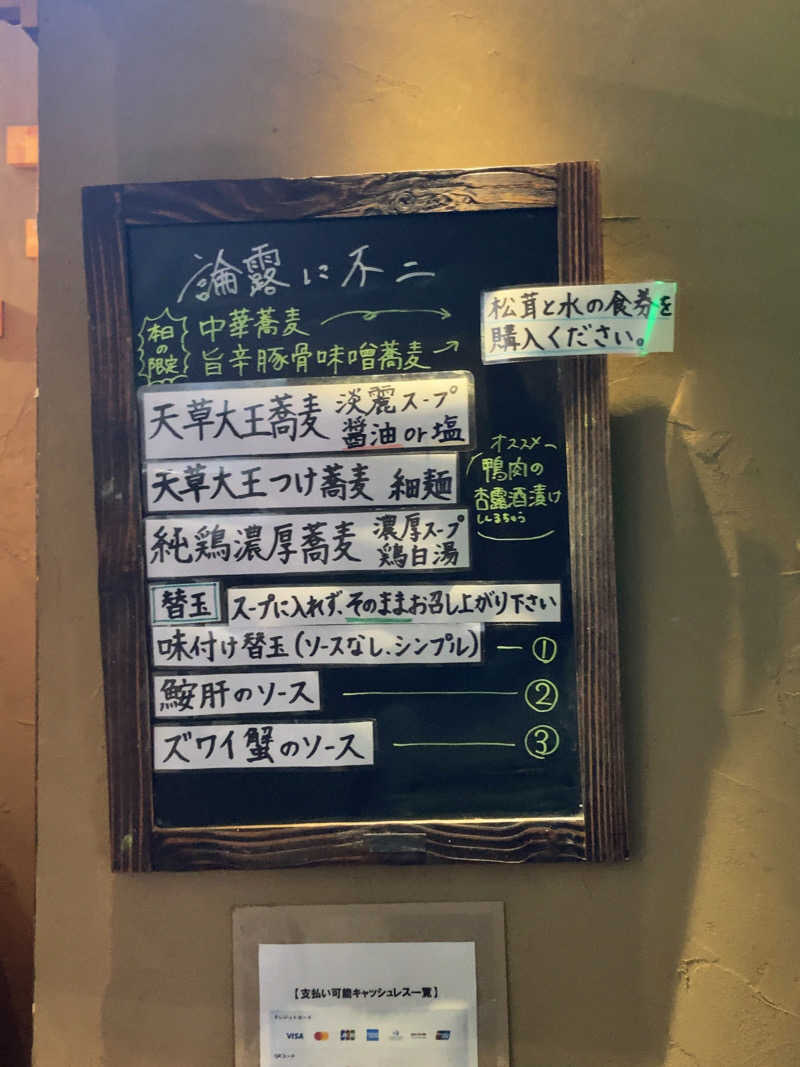 論露に不二
本日の限定
中華蕎麦
旨辛豚骨味噌蕎麦
松茸と水の食券を
購入ください。
天草大王蕎麦 淡麗スープ
醤油or塩
天草大王つけ蕎麦 細麺
純鶏濃厚蕎麦 濃厚スープ
鶏白湯
オススメ
鴨肉の
杏露酒漬け
しんるちゅう
替玉 スープに入れず、そのままお召し上がり下さい
味付け替玉(ソースなし、シンプル) ー ①
鮟肝のソース ー ②
ズワイ蟹のソース ー ③
【支払い可能キャッシュレス一覧】
クレジットカード
VISA
QRコード